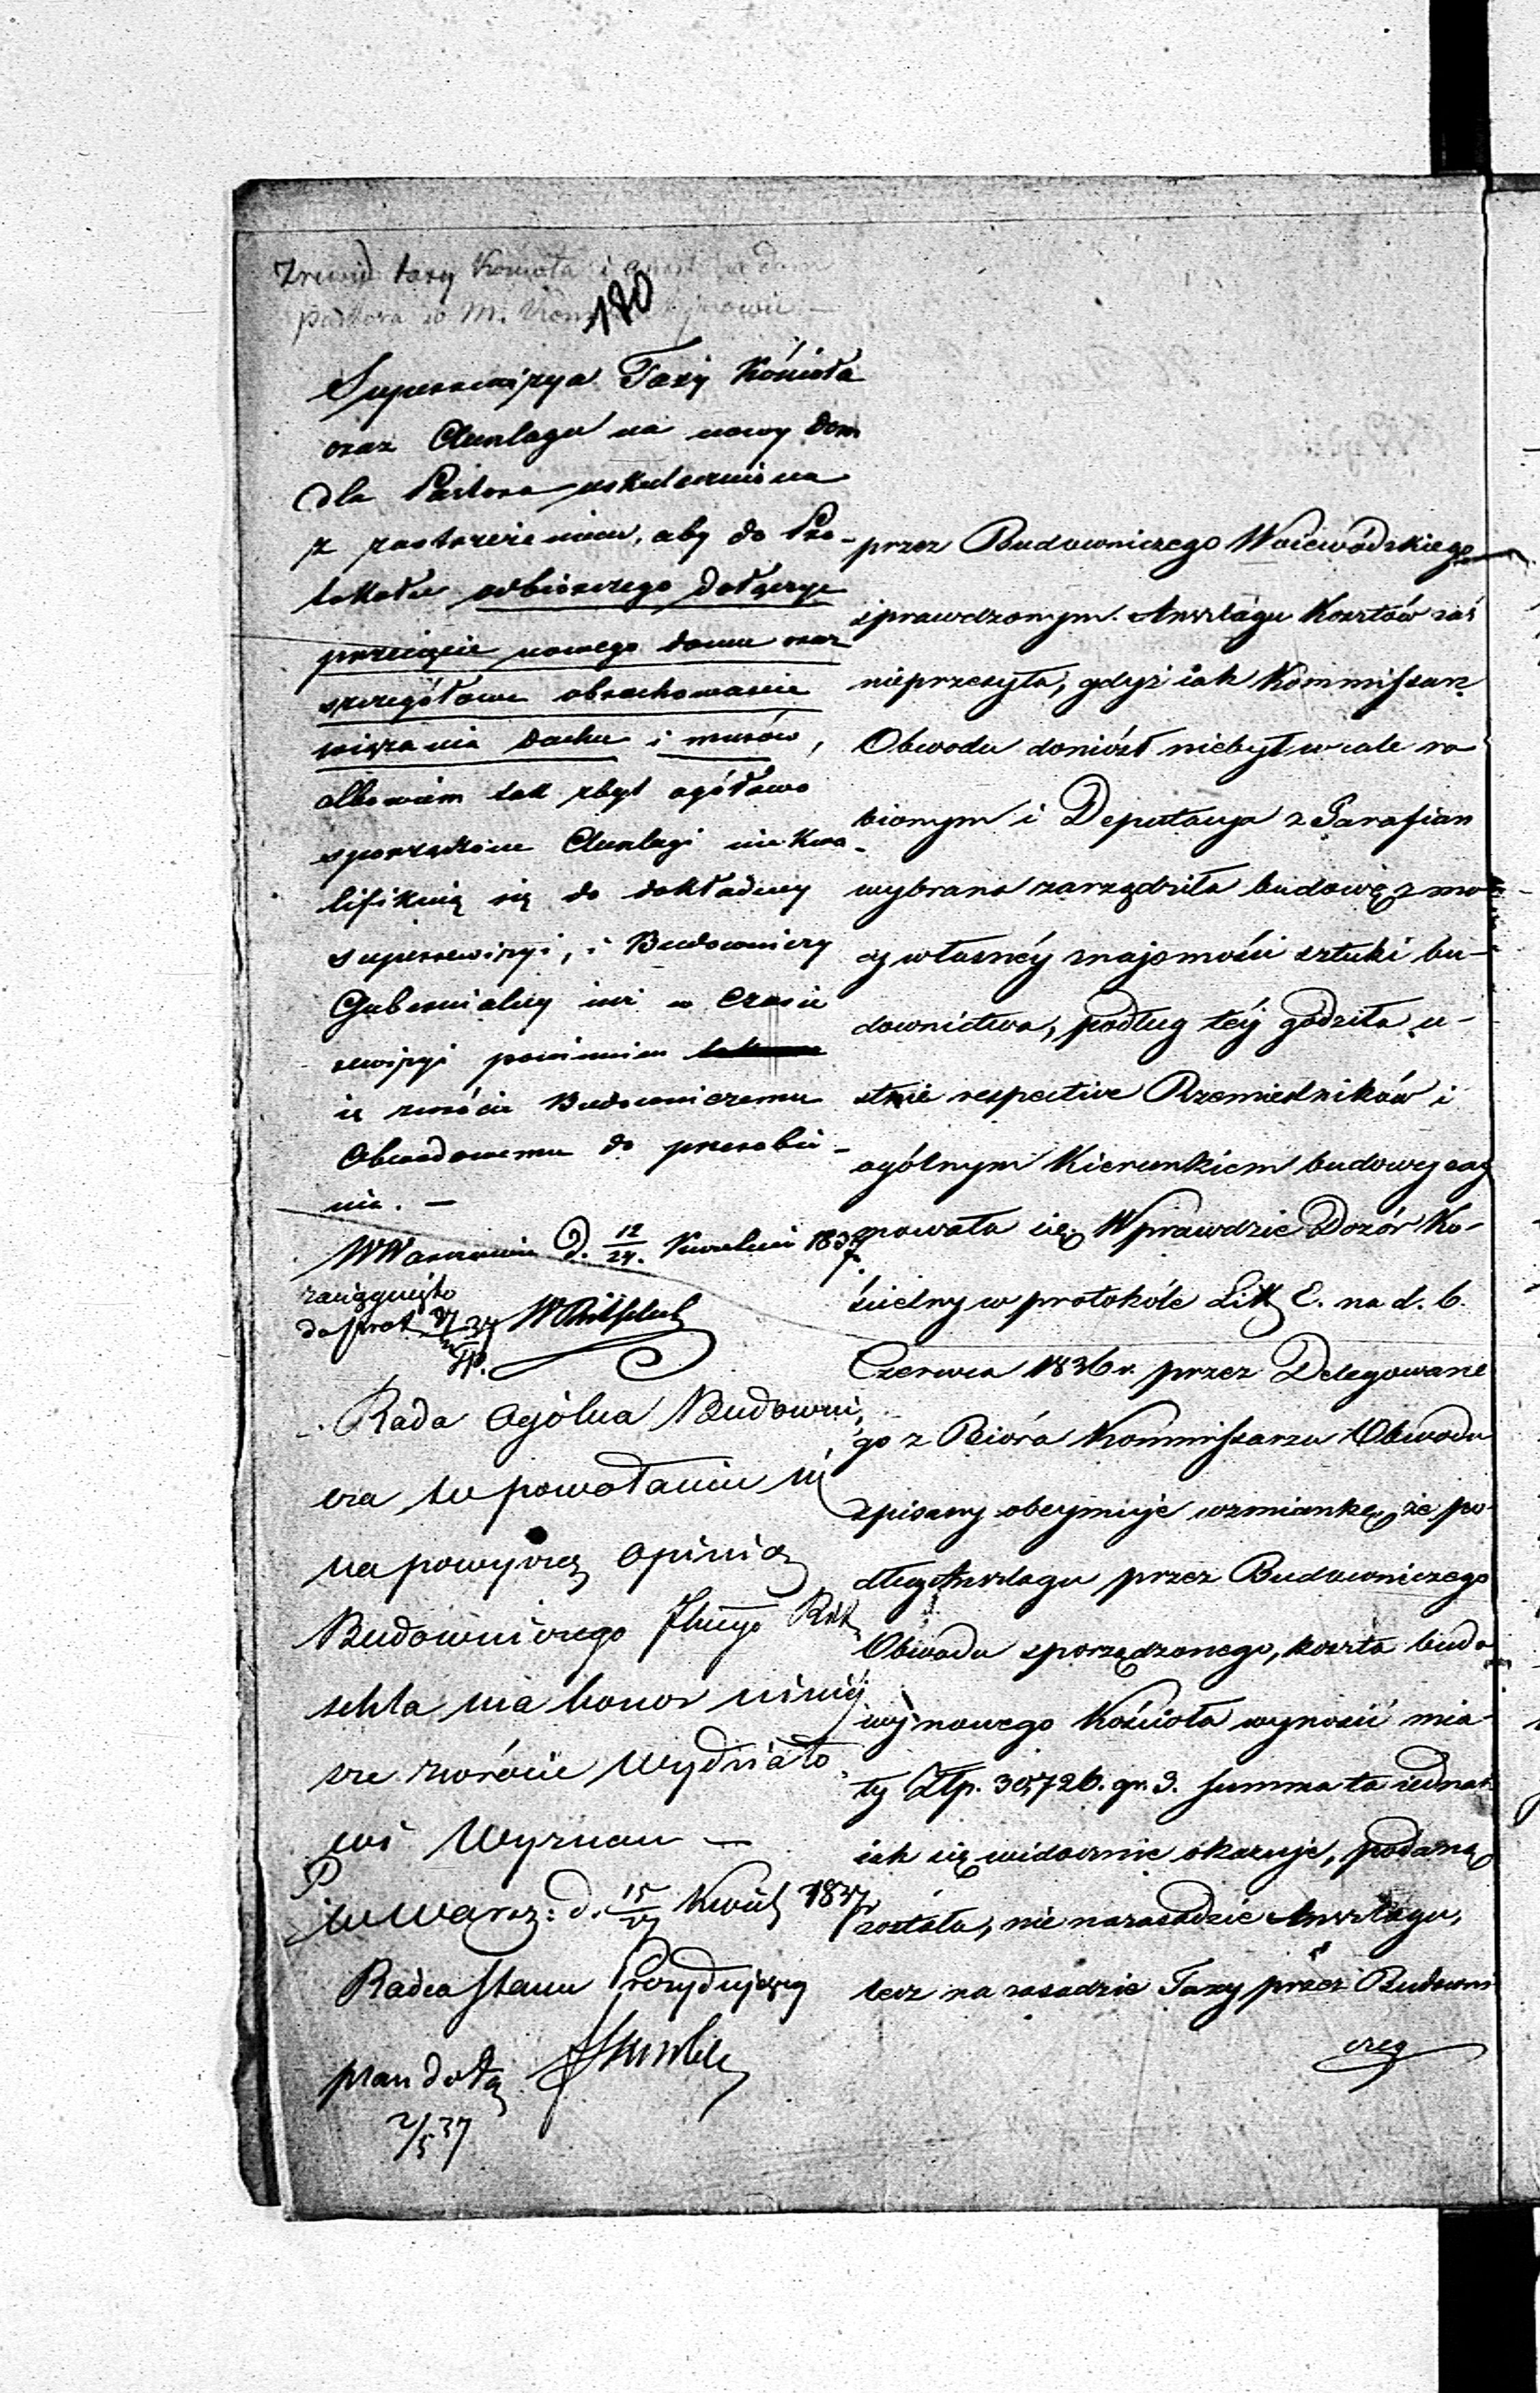 taxy Kościoła i
pastora w M.
180
Superrewizya Taxy Kościoła
oraz Anszlagu na nowy dom
dla Pastora uskuteczniona
z zastrzeżeniem, aby do Pro-
tokołu odbiorczego dołączyć
przecięcie nowego domu oraz
szczegółowe obrachowanie
wiązania dachu i murów,
albowiem tak zbyt ogółowo
sporządzone Anszlagi nie kwa-
lifikuią się do dokładney
superrewizyi, i Budowniczy
Gubernialny iuż w czasie
rewizyi powinien
ie zwrócić Budowniczemu
Obwodowemu do przerobie-
nia. –
W Warszawie d. 12/24. Kwietnia 1837
zaciągnięto
do prot
Rada Ogólna Budowni-
cza w powołaniu się
na powyższą opinią
Budowniczego Rit-
schla ma honor niniey-
sze zwrócić Wydziało-
wi Wyznań –
w Warsz: d. 15/27 Kwiet 1837
Radca Stanu Prezydujący
plan dołą
2/5 37
przez Budowniczego Woiewódzkiego
sprawdzonym. Anszlagu Kosztów zaś
nieprzesyła, gdyż iak Kommissarz
Obwodu doniósł niebył wcale ro-
bionym i Deputacya z Parafian
wybrana zarządziła budowię z mo-
cy własnéy znajomości sztuki bu-
downictwa, podług téy godziła u-
stnie respective Rzemieślników i
ogólnym Kierunkiem budowy zay
mowała się. Wprawdzie Dozór Ko-
ścielny w protokóle Litt E. na d. 6.
Czerwca 1836 r. przez Delegowane
go z Bióra Kommissarza Obwodu
spisany obeymuje wzmiankę, że po-
dług Anszlagu przez Budowniczego
Obwodu sporządzonego, koszta budo
wy nowego Kościoła wynosić mia-
ły Złp. 30,726. gr. 3. summa ta iednak
iak się widocznie okazuje, podaną
została, nie na zasadzie Anszlagu,
lecz na zasadzie Taxy przez Budowni
czeg